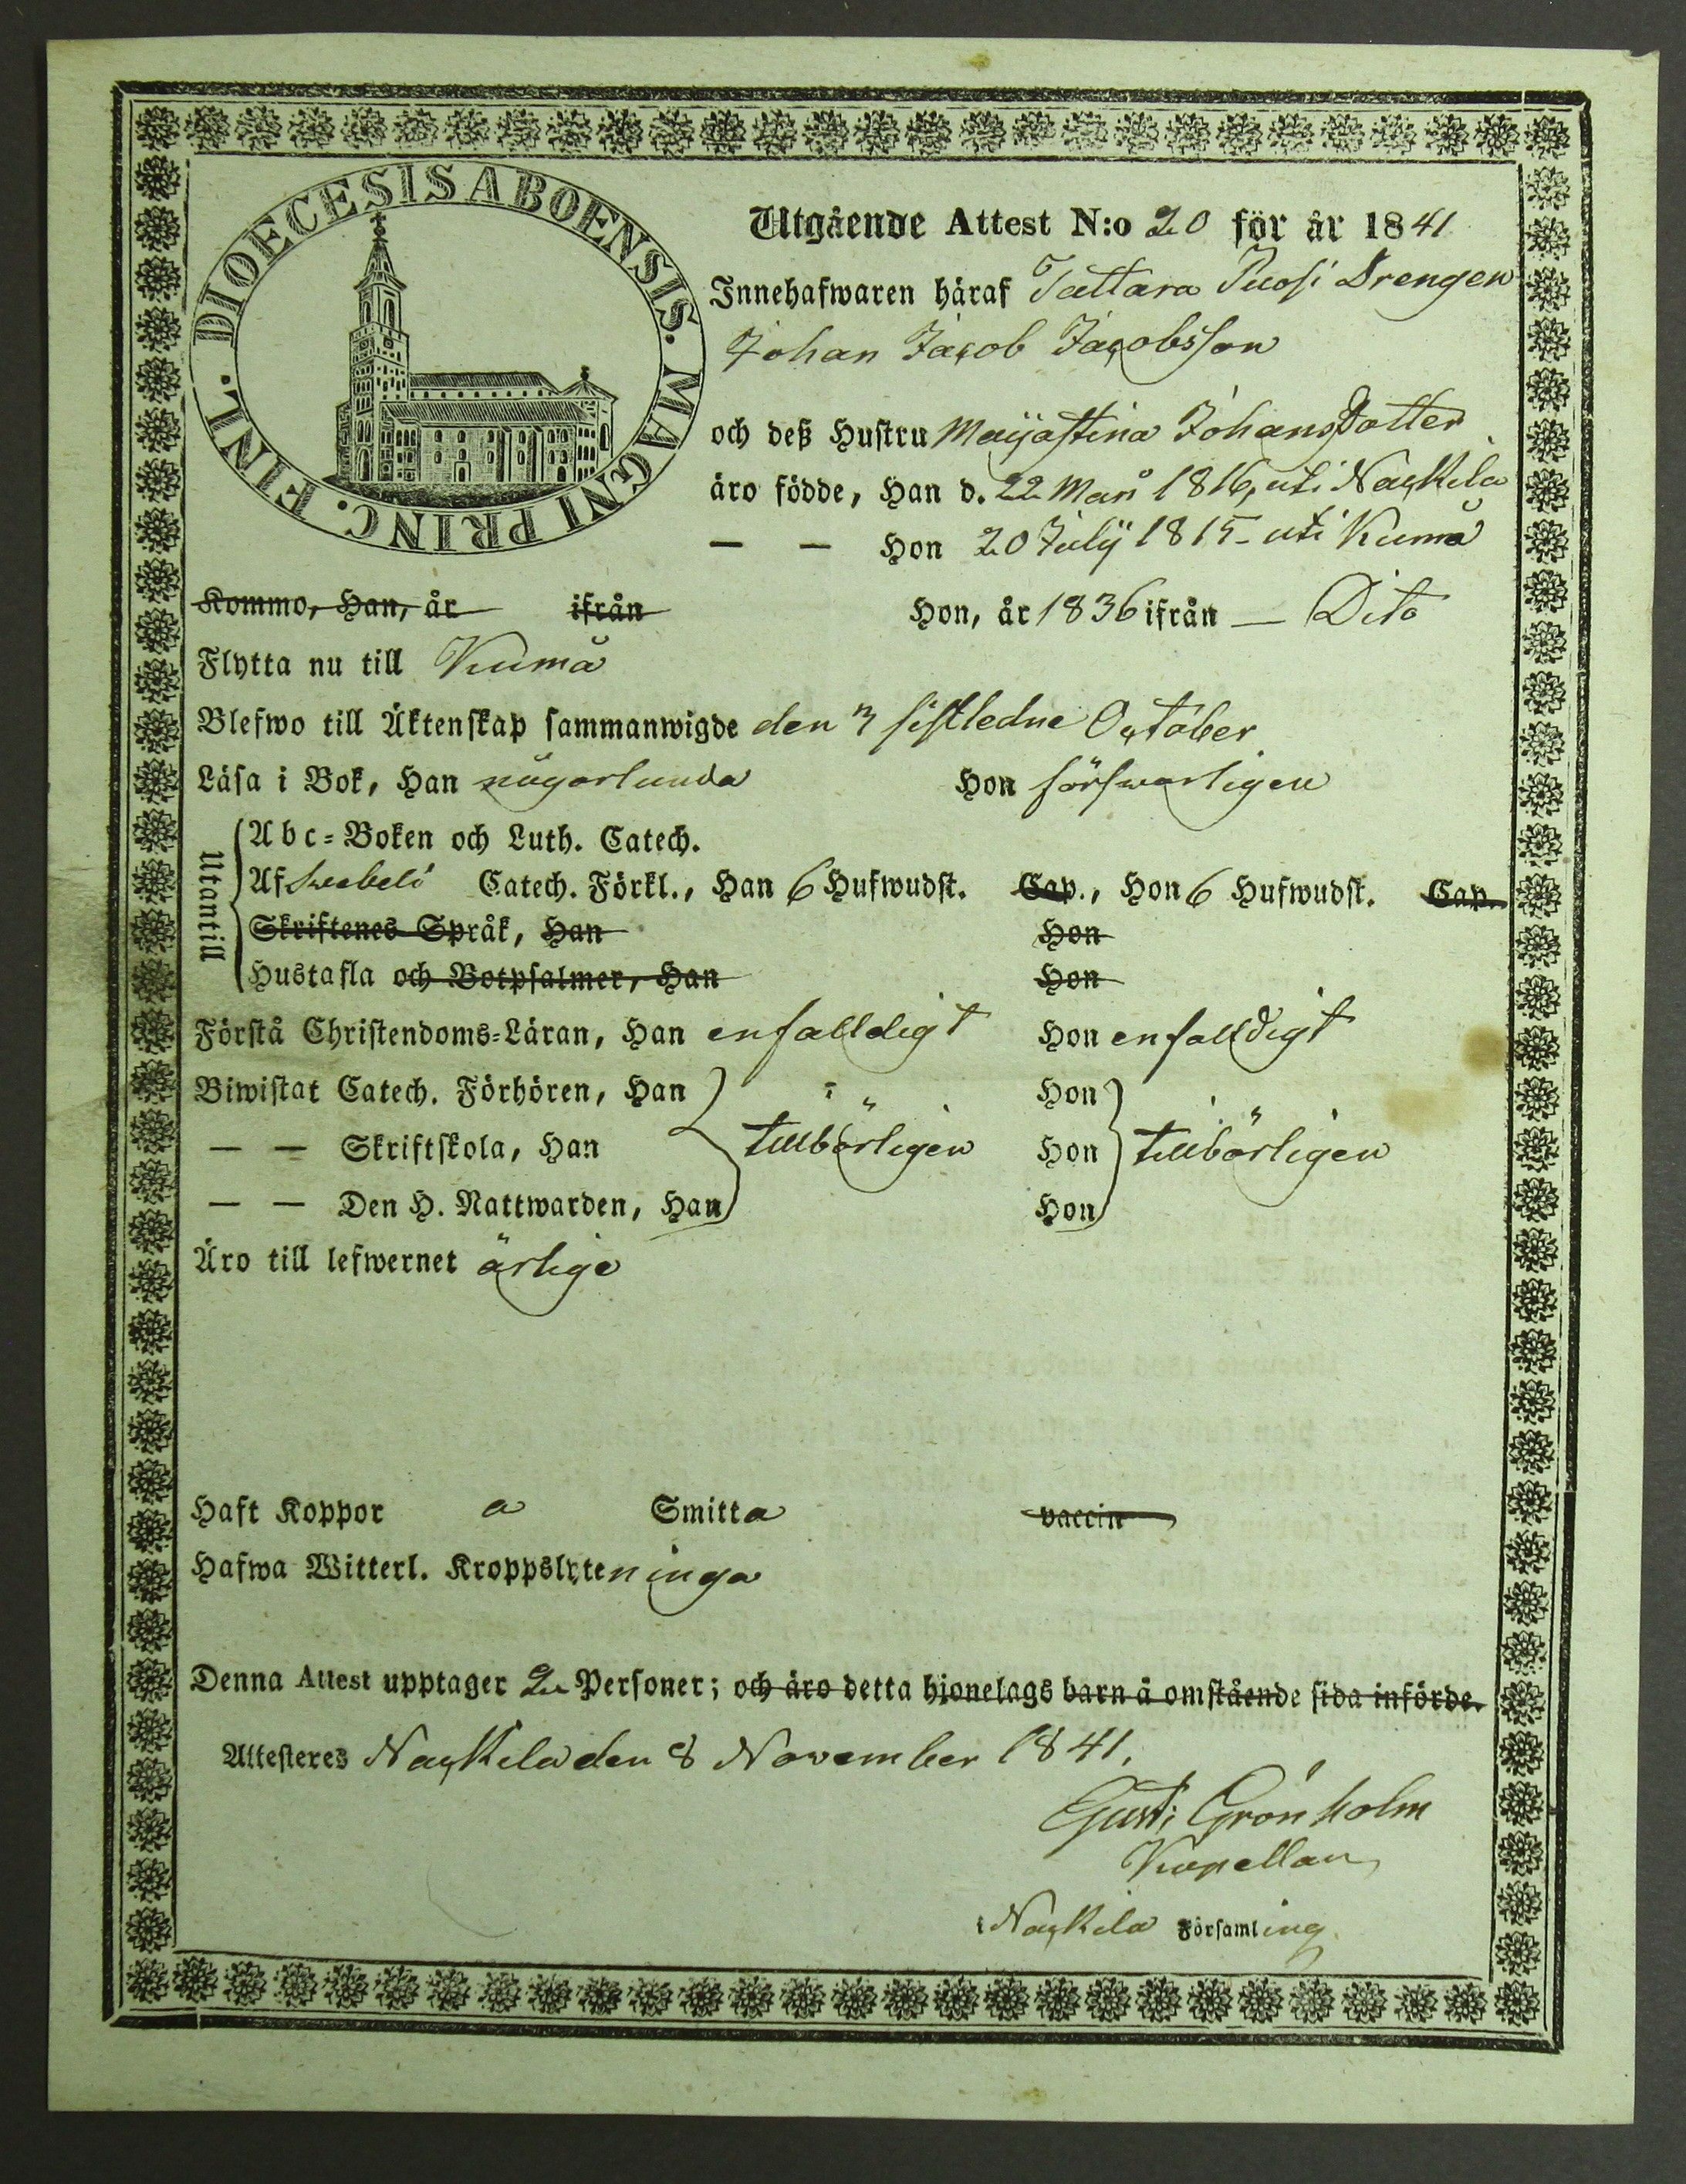 DIOECESIS ABOENSIS. MAGNI PRINC. FINL.
Utgående Attest N:o 20 för år 1841
Innehafwaren häraf Tattara Puosi Drengen
Johan Jacob Jacobsson
och deß Hustru Majastina JohansDotter
äro födde, Han d. 22 Mars 1816, uti Nackila
— — Hon 20 Julij 1815 – uti Kumå
Kommo, Han, år ifrån Hon, år 1836 ifrån — Dito
Flytta nu till Kumå
Blefwo till Äktenskap sammanwigde den 3 sistledne October
Läsa i Bok, Han någorlunda Hon försvarligen
Utantill
Abc-Boken och Luth. Catech.
Af Swebeli Catech. Förkl., Han 6 Hufwudst. Cap., Hon 6 Hufwudst. Cap.
Skriftenes Språk, Han Hon
Hustafla och Botpsalmer, Han Hon
Förstå Christendoms-Läran, Han enfalldigt Hon enfalldigt
Biwistat Catech. Förhören, Han Hon
— — Skriftskola, Han tillbörligen Hon tillbörligen
— — Den H. Nattwarden, Han Hon
Äro till lefwernet ärlige
Haft Koppor a Smitta vaccin
Hafwa Witterl. Kroppslyten inga
Denna Attest upptager 2 Personer; och äro detta hjonelags barn å omstående sida införde.
Attesteres Nackila den 8 November 1841.
Gust: Grönholm
Kapellan
i Nackila Församling